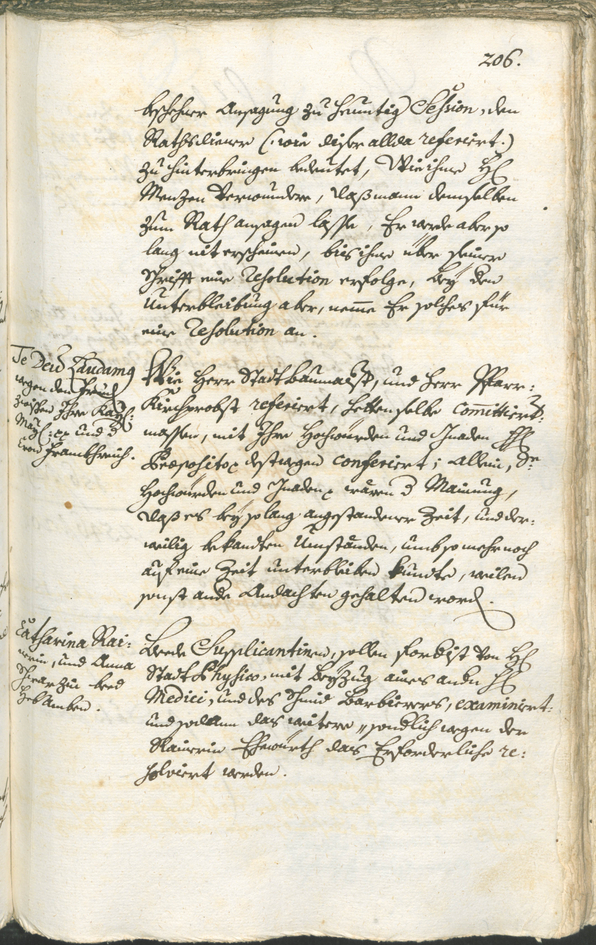 206.
beschehene Ansagung zu heuntig Session, den
Rathsdiener (: wie diser allda referiert.)
zu hinterbringen bedeutet, Wie ihne H
Menzen verwundere, daß mann demselben
zum Rath ansagen lasse, Er werde aber so
lang nit erscheinen, bis ihme über seinere
Schrifft eine Resolution erfolge, bey den
Unterbleibung aber, nemme Er solches für
eine Resolution an.
Te Deum Laudamus
wegen den Frid
zwischen Ihro Kay:
May: und
von Frankhreich.
Wie Herr Stadtbaumaister, und Herr Pfarr:
Kirchprobst referiert, hetten selbe comittirter:
massen, mit Ihro Hochwürden und Gnaden
Praeposito destwegen conferiert; allein, Se
Hochwürden und Gnaden waren Mainung,
daß es bey so lang angestandener Zeit, und der:
weilig bekandten Umständen, umb so mehr noch
auf eine Zeit unterbleiben kundte, weilen
sonst ande Andachten gehalten word.
Catharina Rai:
nerin, und Anna
Schwarzin beed
Heb Amben.
Beede Supplicantinen, sollen fordist von H
Stadt Physico, mit beyzug aines andn H
Medici, und des Schmid Barbierers, examiniert:
und sodann das weitere, sondlich wegen der
Rainerin Ehewürth das Erforderliche re:
solviert werden.